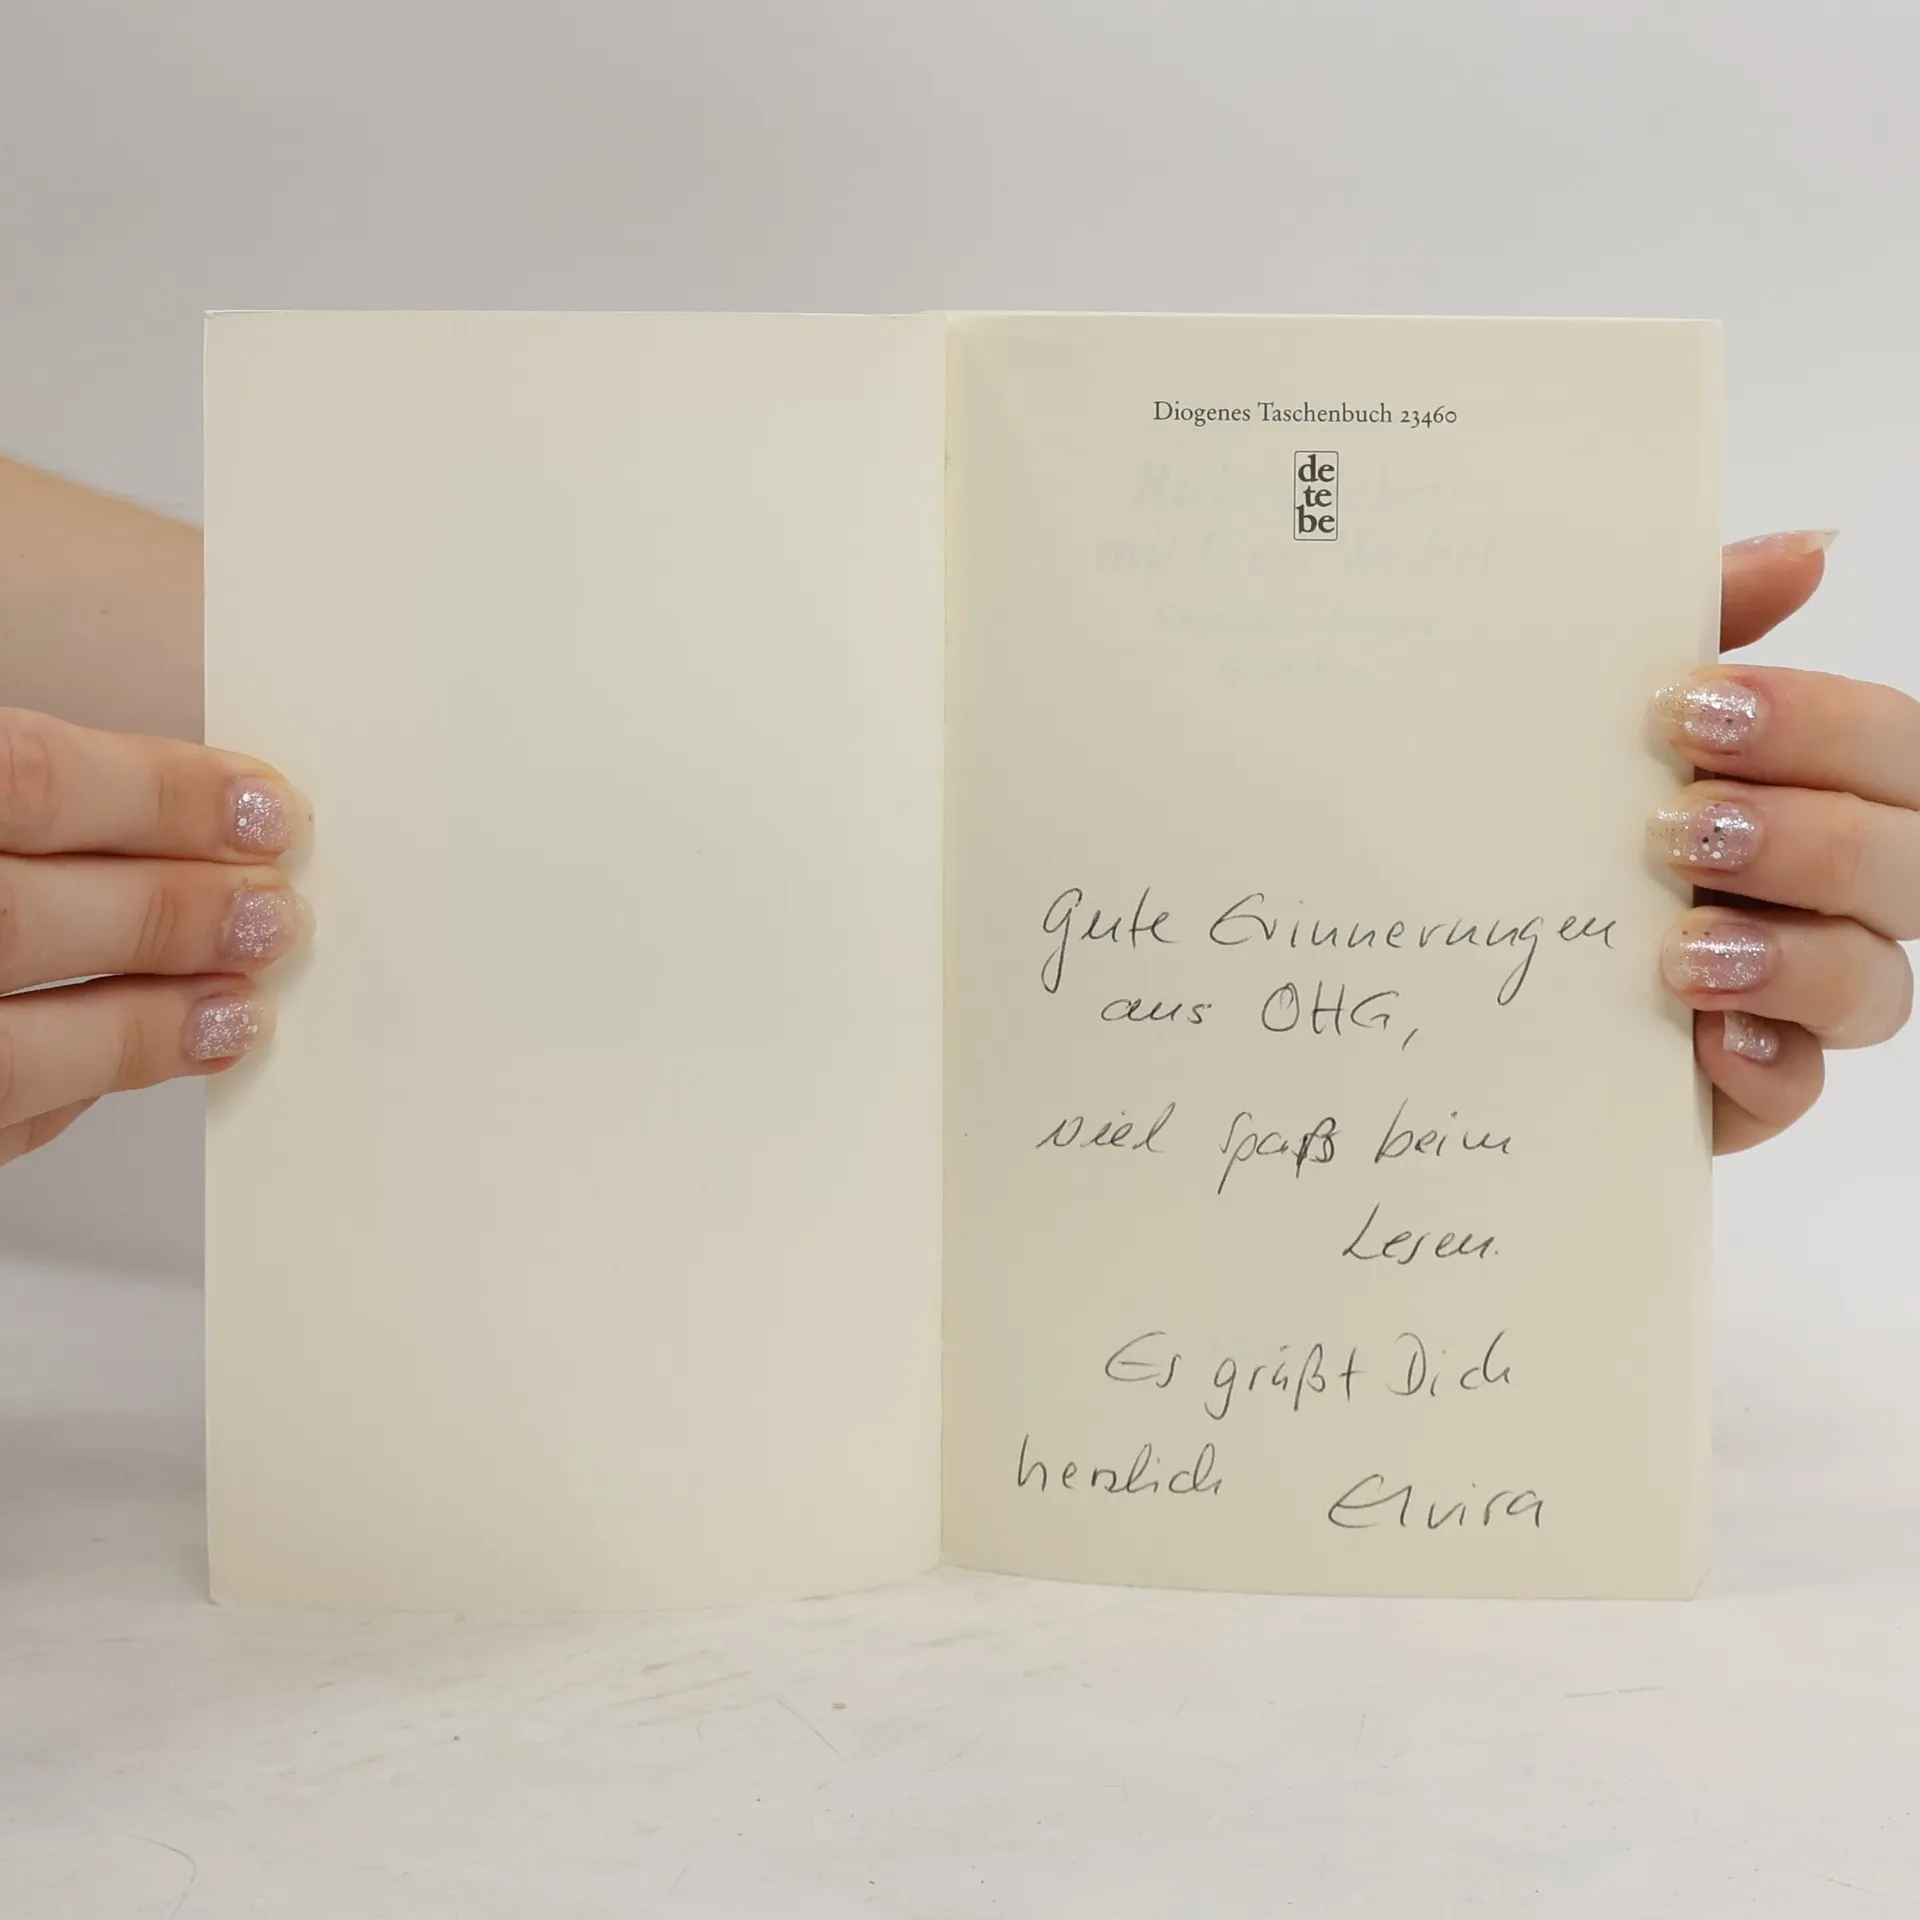 Diogenes Taschenbuch 23460
de
te
be
Gute Erinnerungen
aus OHG,
viel Spaß beim
Lesen.
Es grüßt Dich
herzlich Elvira